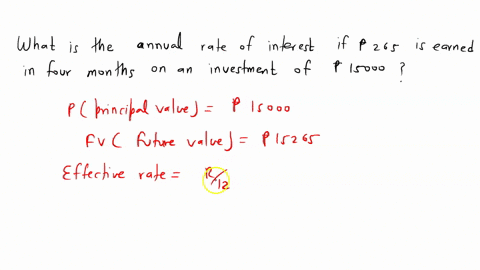 What is the annual rate of interest if ₱265 is earned
in four months on an investment of ₱15000?
P(principal value) = ₱15000
FV(future value) = ₱15265
Effective rate = r/12